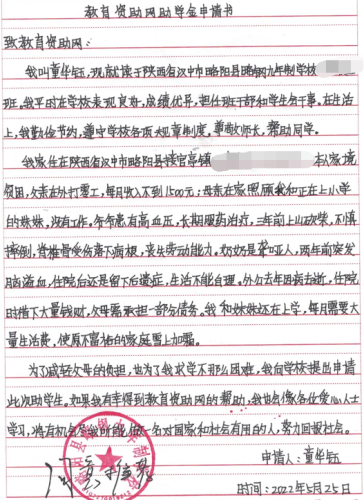 教育资助网助学金申请书
致教育资助网:
我叫童华钰,现就读于陕西省汉中市略阳县略钢九年制学校
班,我平时在学校表现良好,成绩优异,担任班干部和学生会干事。在生活
上,我勤俭节约,遵守学校各项规章制度,尊敬师长,帮助同学。
我家住在陕西省汉中市略阳县接官亭镇 家境
贫困,父亲在外打零工,每月收入不到1500元;母亲在家照顾我和正在上小学
的妹妹,没有工作。爷爷患有高血压,长期服药治疗,三年前上山砍柴,不慎
摔倒,脊椎骨受伤落下病根,丧失劳动能力。奶奶是聋哑人,两年前突发
脑溢血,住院后还是留下后遗症,生活不能自理。外公去年因病去逝,住院
时借下大量钱财,父母需承担一部分债务。我和妹妹还在上学,每月需要大
量生活费,使原不富裕的家庭雪上加霜。
为了减轻父母的负担,也为了我求学不那么困难,我向学校提出申请
此次助学生。如果我有幸得到教育资助网的帮助,我也会像各位爱心人士
学习,将有机会尽我所能做一名对国家和社会有用的人,努力回报社会。
申请人:童华钰
时间:2022年5月25日